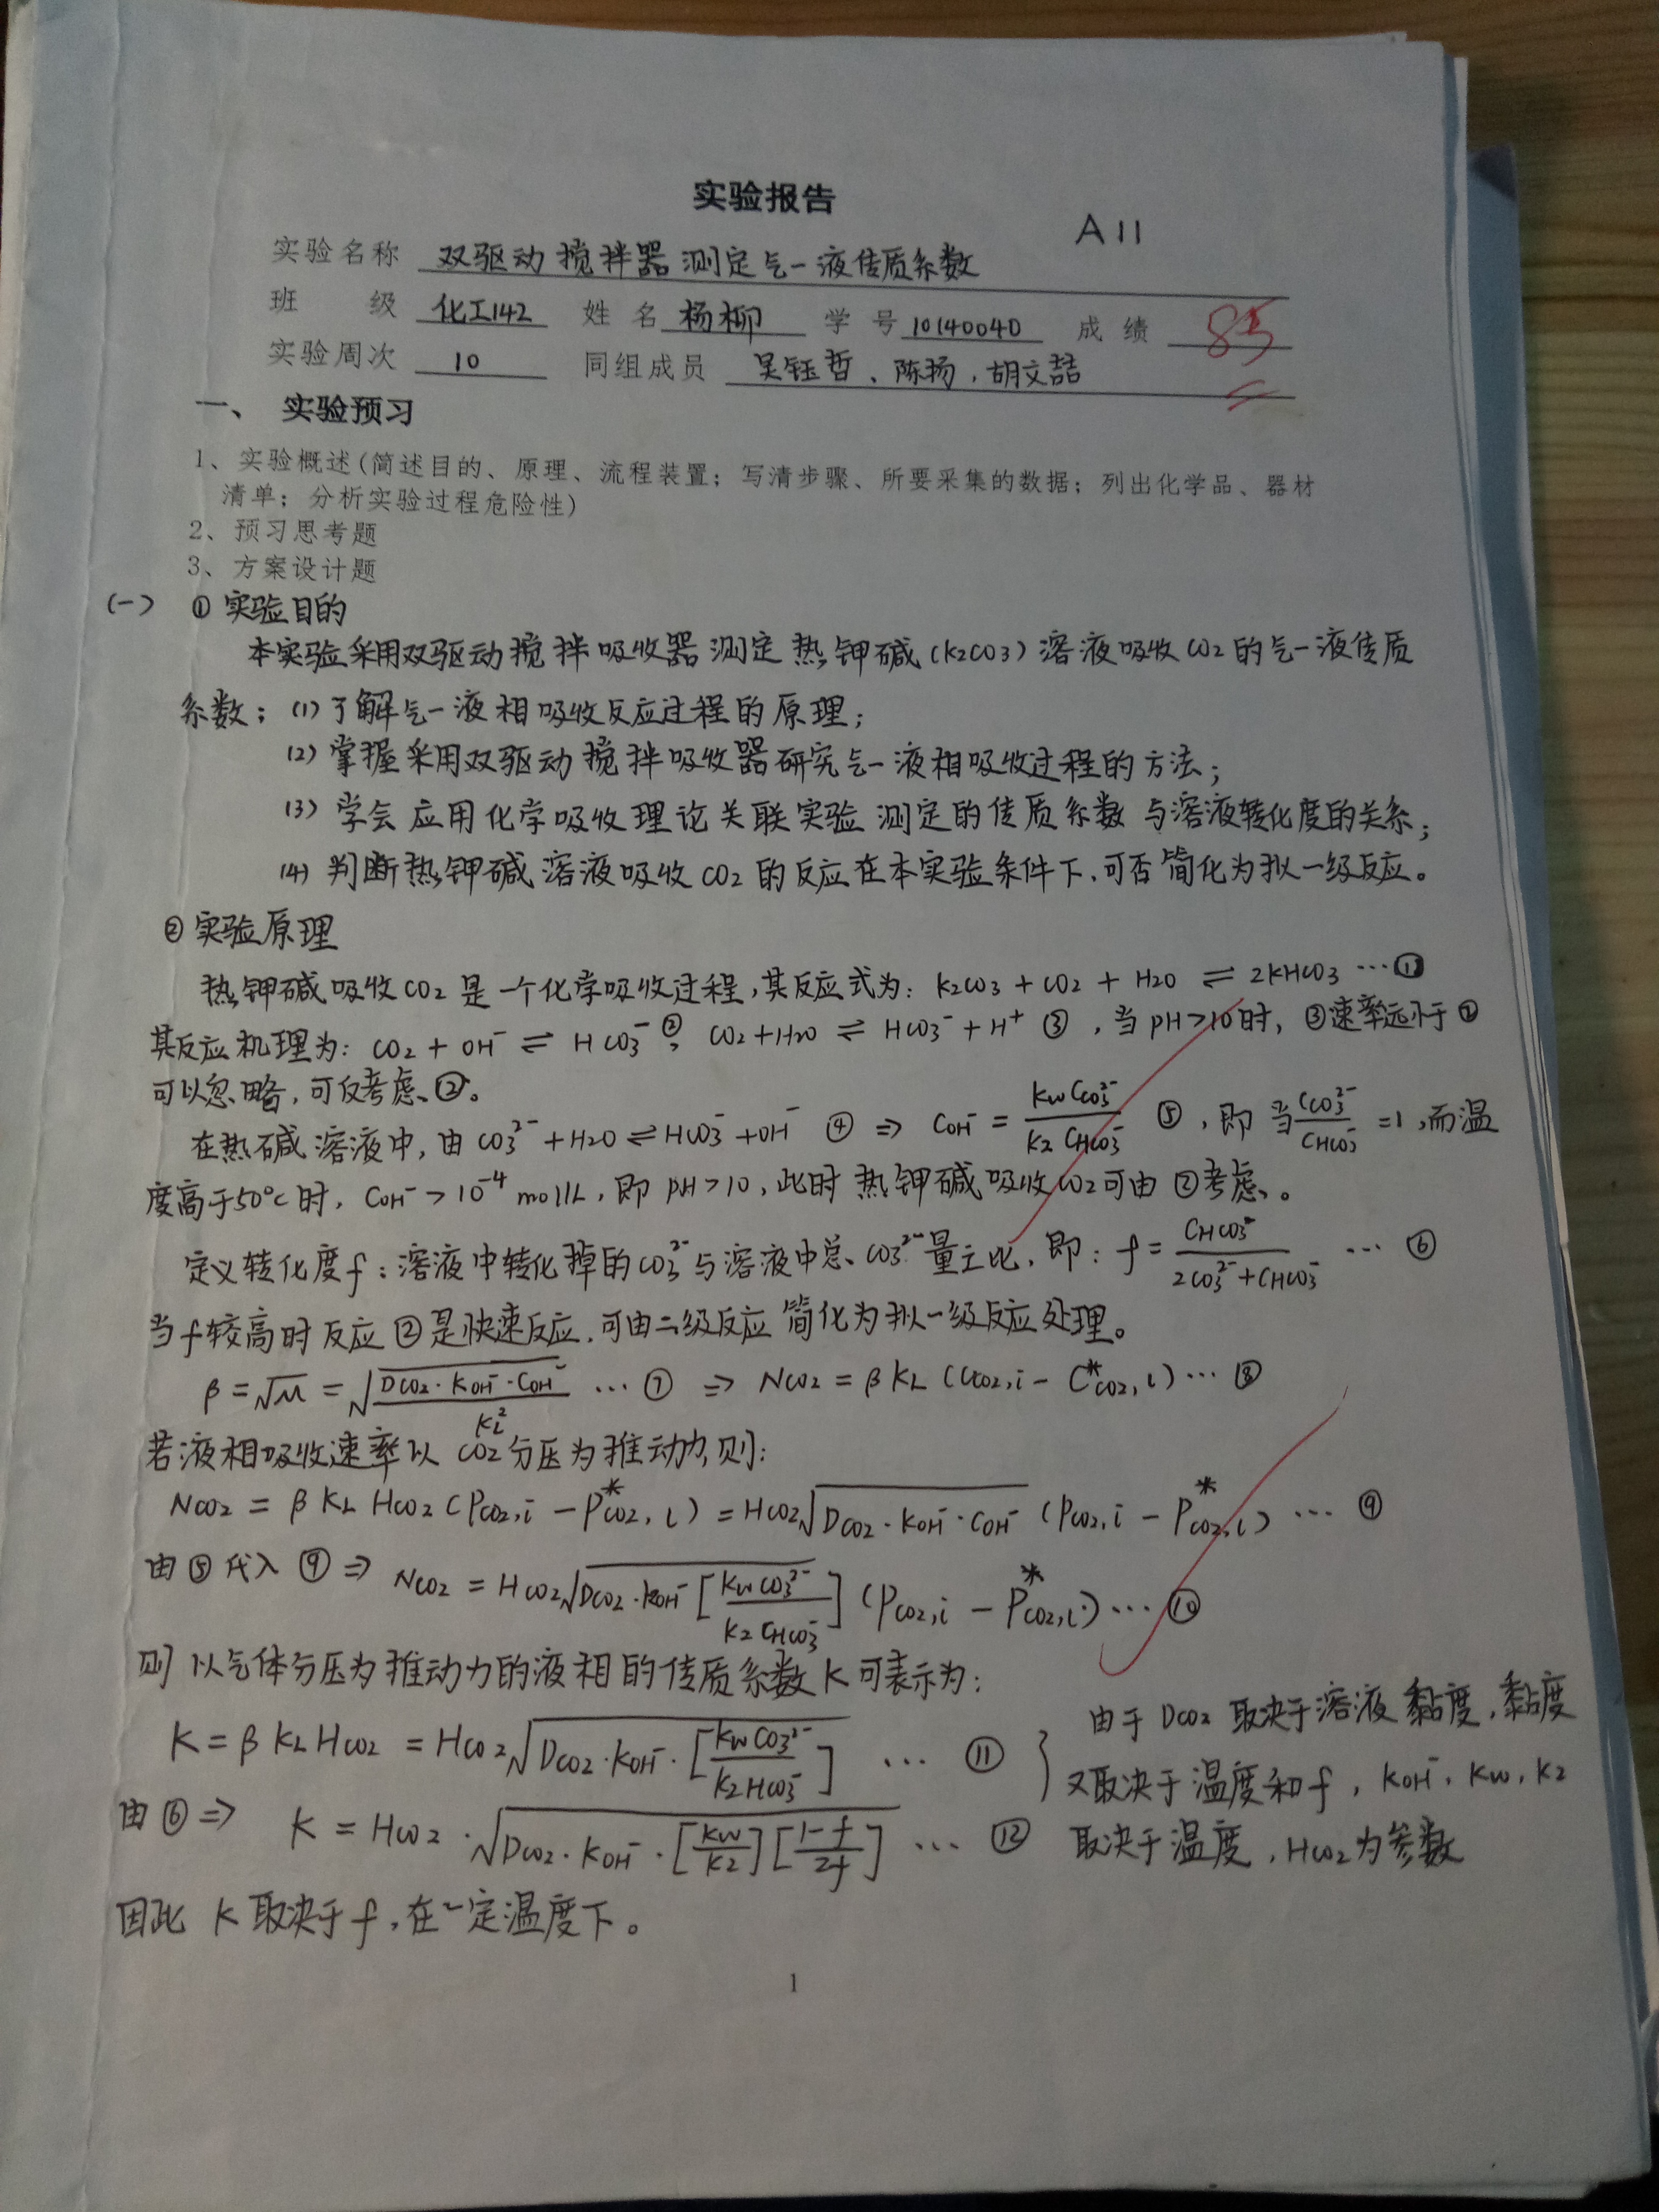 实验报告
A11
实验名称 双驱动搅拌器测定气-液传质系数
班 级 化工142 姓名 杨柳 学号 10140040 成绩 85
实验周次 10 同组成员 吴钰哲、陈扬,胡文喆
一、 实验预习
1、实验概述(简述目的、原理、流程装置;写清步骤、所要采集的数据;列出化学品、器材
清单;分析实验过程危险性)
2、预习思考题
3、方案设计题
(一) ① 实验目的
本实验采用双驱动搅拌吸收器测定热钾碱(K2CO3)溶液吸收CO2的气-液传质
系数;(1)了解气-液相吸收反应过程的原理;
(2)掌握采用双驱动搅拌吸收器研究气-液相吸收过程的方法;
(3)学会应用化学吸收理论关联实验测定的传质系数与溶液转化度的关系;
(4)判断热钾碱溶液吸收CO2的反应在本实验条件下,可否简化为拟一级反应。
② 实验原理
热钾碱吸收CO2是一个化学吸收过程,其反应式为:K2CO3 + CO2 + H2O ⇌ 2KHCO3 …①
其反应机理为:CO2 + OH⁻ ⇌ HCO3⁻ ②, CO2+H2O ⇌ HCO3⁻ + H⁺ ③,当pH>10时,③速率远小于②
可以忽略,可仅考虑②。
在热碱溶液中,由CO3²⁻+H2O⇌HCO3⁻+OH⁻ ④ ⇒ COH⁻ = KwCCO3²⁻ / K2CHCO3⁻ ⑤,即当CCO3²⁻/CHCO3⁻=1,而温
度高于50℃时,COH⁻>10⁻⁴ mol/L,即pH>10,此时热钾碱吸收CO2可由②考虑。
定义转化度f:溶液中转化掉的CO3²⁻与溶液中总CO3²⁻量之比,即:f = CHCO3⁻ / 2CO3²⁻+CHCO3⁻ … ⑥
当f较高时反应②是快速反应,可由二级反应简化为拟一级反应处理。
β=√M = √DCO2·KOH⁻·COH⁻ / KL² … ⑦ ⇒ NCO2 = βKL(CCO2,i − C*CO2,L)… ⑧
若液相吸收速率以CO2分压为推动力,则:
NCO2 = βKL HCO2(PCO2,i − P*CO2,L) = HCO2√DCO2·KOH⁻·COH⁻ (PCO2,i − P*CO2,L) … ⑨
由⑤代入⑨ ⇒ NCO2 = HCO2√DCO2·KOH⁻[KwCO3²⁻ / K2CHCO3⁻] (PCO2,i − P*CO2,L)… ⑩
则以气体分压为推动力的液相的传质系数K可表示为:
K = βKLHCO2 = HCO2√DCO2·KOH⁻·[KwCO3²⁻ / K2HCO3⁻] … ⑪
由⑥⇒ K = HCO2·√DCO2·KOH⁻·[Kw/K2][1−f / 2f] … ⑫
由于DCO2取决于溶液黏度,黏度
又取决于温度和f,KOH⁻,Kw,K2
取决于温度,HCO2为参数
因此K取决于f,在一定温度下。
1